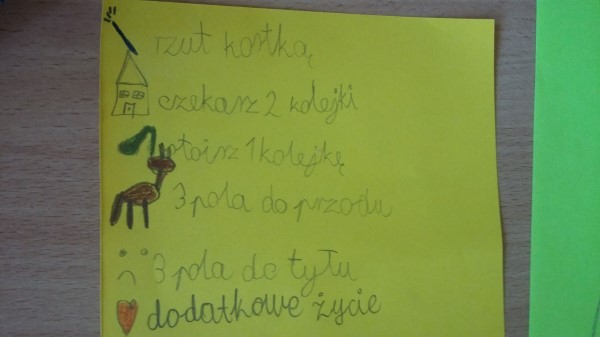 rzut kostką
czekasz 2 kolejki
stoisz 1 kolejkę
3 pola do przodu
3 pola do tyłu
dodatkowe życie